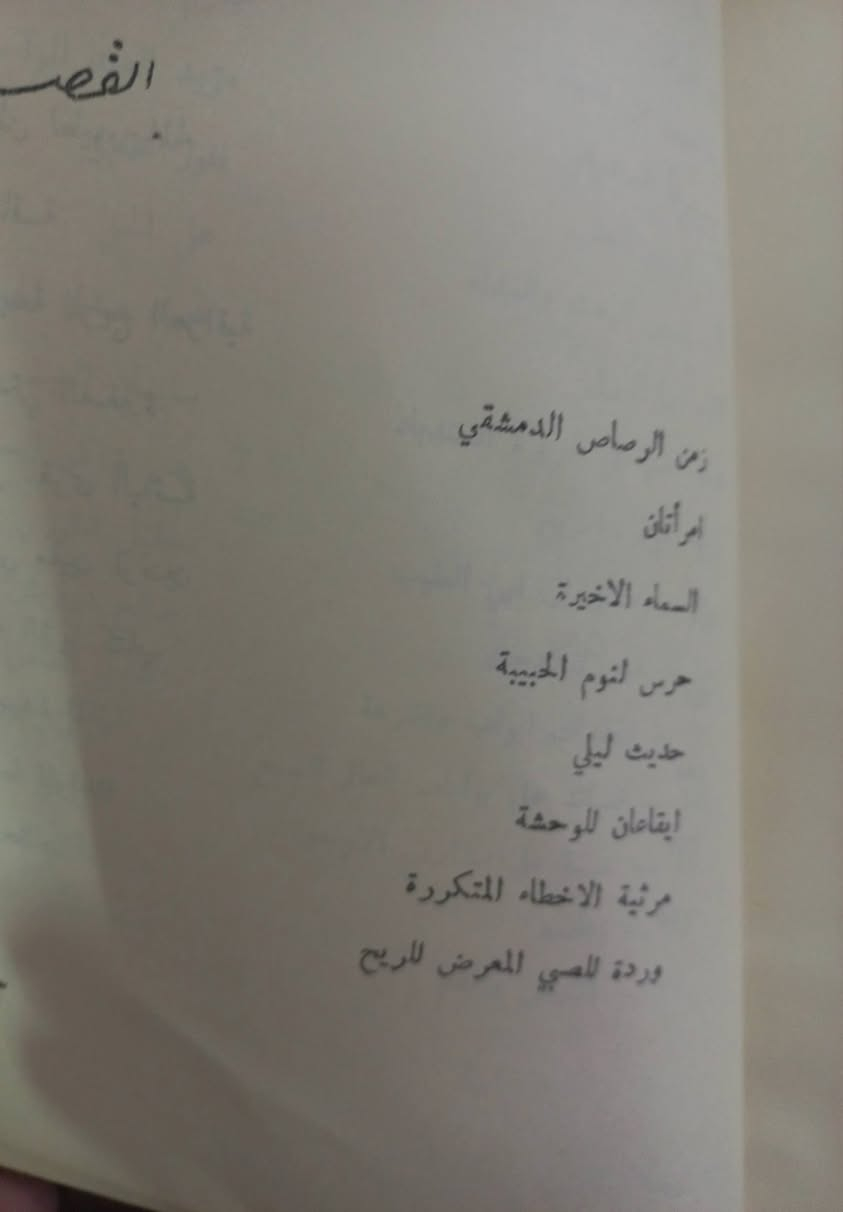 القصـ
زمن الرصاص الدمشقي
امرأتان
السماء الاخيرة
حرس لنوم الحبيبة
حديث ليلي
ايقاعان للوحشة
مرثية الاخطاء المتكررة
وردة للصبي المعرض للريح